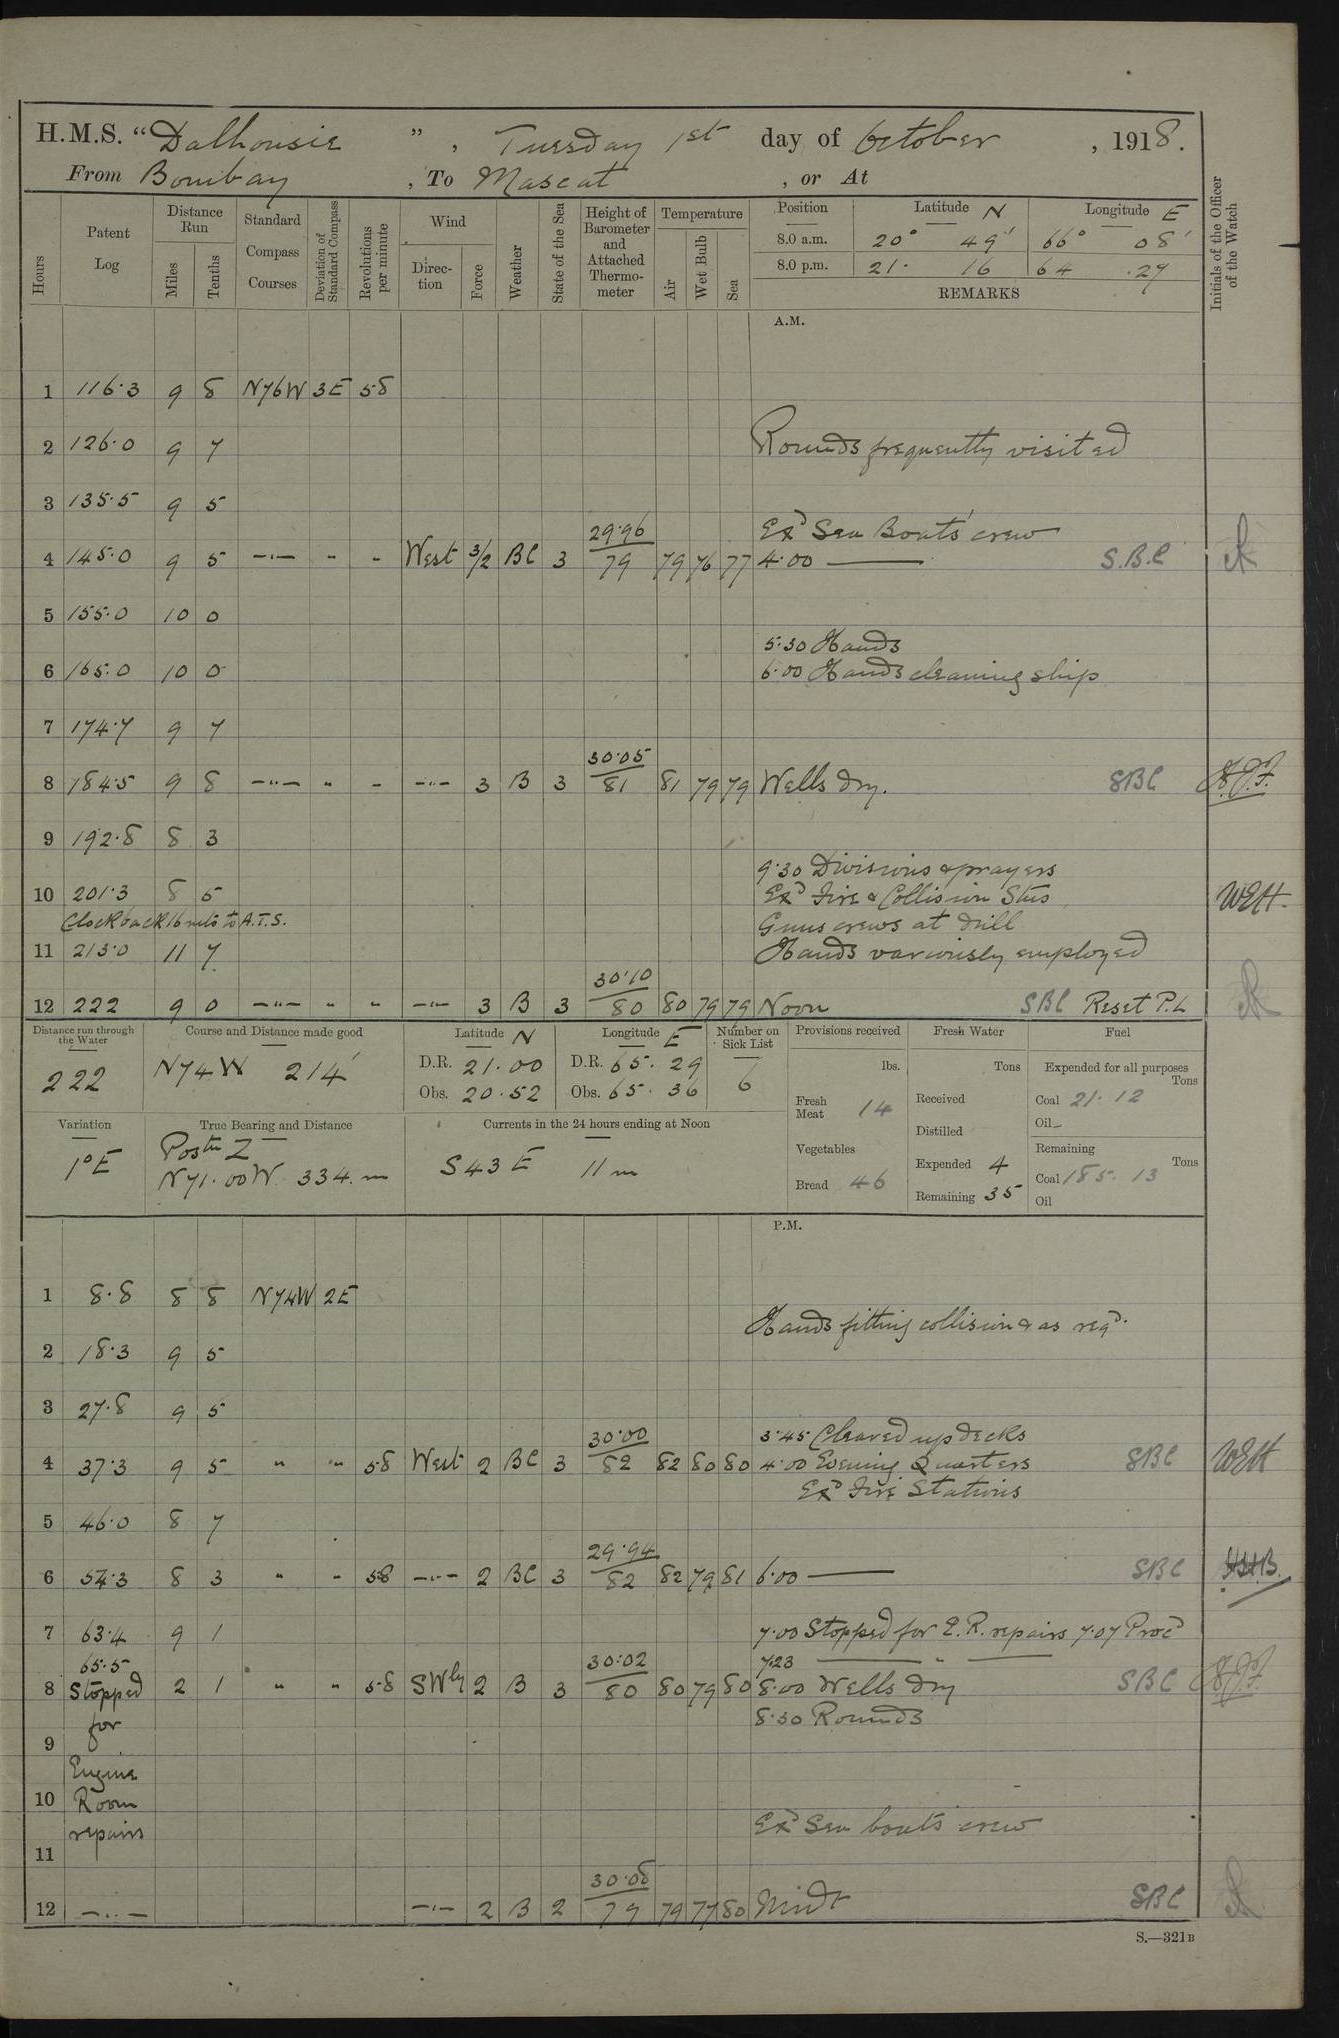 H.M.S. “Dalhousie”, Tuesday 1st day of October, 1918.
From Bombay, To Mascat, or At
Hours
Patent Log
Distance Run
Miles
Tenths
Standard Compass Courses
Deviation of Standard Compass
Revolutions per minute
Wind
Direction
Force
Weather
State of the Sea
Height of Barometer and Attached Thermometer
Temperature
Air
Wet Bulb
Sea
Position Latitude N Longitude E
8.0 a.m. 20° 49' 66° 08'
8.0 p.m. 21. 16 64 .27
REMARKS
Initials of the Officer of the Watch
A.M.
1 116.3 9 8 N76W 3E 58
2 126.0 9 7 Rounds frequently visited
3 135.5 9 5
29.96 Exd Sea Boats' crew
4 145.0 9 5 —"— " " West 3/2 BC 3 79 79 76 77 4.00 —— S.B.C
5 155.0 10 0
5.30 Hands
6 165.0 10 0 6.00 Hands cleaning ship
7 174.7 9 7
30.05
8 184.5 9 8 —"— " " —"— 3 B 3 81 81 79 79 Wells dry. SBC
9 192.8 8 3
9.30 Divisions & prayers
10 201.3 8 5 Exd Fire & Collision Stns WEH.
Clock back 16 mts to A.T.S. Guns crews at drill
11 213.0 11 7 Hands variously employed
30.10
12 222 9 0 —"— " " —"— 3 B 3 80 80 79 79 Noon SBC Reset P.L
Distance run through the Water
222
Course and Distance made good
N74W 214'
Latitude N
D.R. 21.00
Obs. 20.52
Longitude E
D.R. 65. 29
Obs. 65. 36
Number on Sick List
6
Provisions received
lbs.
Fresh Meat 14
Vegetables
Bread 46
Fresh Water
Tons
Received
Distilled
Expended 4
Remaining 35
Fuel
Expended for all purposes
Tons
Coal 21.12
Oil
Remaining
Tons
Coal 185. 13
Oil
Variation
1°E
True Bearing and Distance
Postn Z
N71.00W. 334.m
Currents in the 24 hours ending at Noon
S43E 11m
P.M.
1 8.8 8 8 N74W 2E
Hands fitting collision & as reqd.
2 18.3 9 5
3 27.8 9 5
30.00 3.45 Cleared up decks
4 37.3 9 5 " " 58 West 2 BC 3 82 82 80 80 4.00 Evening Quarters SBC WEH
Exd Fire Stations
5 46.0 8 7
29.94
6 54.3 8 3 " " 58 —"— 2 BC 3 82 82 79 81 6.00 —— SBC
7 63.4 9 1 7.00 Stopped for E.R. repairs 7.07 Procd
65.5 30.02 7.23 —— " ——
8 Stopped 2 1 " " 58 SWly 2 B 3 80 80 79 80 8.00 Wells dry SBC
for 8.30 Rounds
9
Engine
10 Room
repairs Exd Sea boats crew
11
30.08
12 —"— —"— 2 B 2 79 79 77 80 Midt SBC
S.—321B